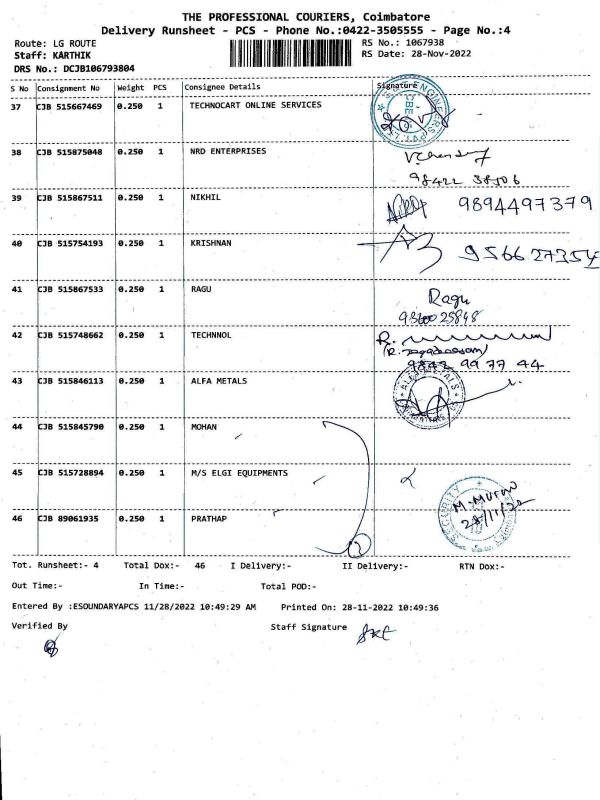 THE PROFESSIONAL COURIERS, Coimbatore
Delivery Runsheet - PCS - Phone No.:0422-3505555 - Page No.:4
Route: LG ROUTE RS No.: 1067938
Staff: KARTHIK RS Date: 28-Nov-2022
DRS No.: DCJB106793804
S No Consignment No Weight PCS Consignee Details Signature
37 CJB 515667469 0.250 1 TECHNOCART ONLINE SERVICES
38 CJB 515875048 0.250 1 NRD ENTERPRISES
98422 38506
39 CJB 515867511 0.250 1 NIKHIL 9894497379
40 CJB 515754193 0.250 1 KRISHNAN 956627354
41 CJB 515867533 0.250 1 RAGU Ragu
42 CJB 515748662 0.250 1 TECHNNOL R.
99 77 44
43 CJB 515846113 0.250 1 ALFA METALS
44 CJB 515845790 0.250 1 MOHAN
45 CJB 515728894 0.250 1 M/S ELGI EQUIPMENTS
SECURITY
28/11/22
46 CJB 89061935 0.250 1 PRATHAP
Tot. Runsheet:- 4 Total Dox:- 46 I Delivery:- II Delivery:- RTN Dox:-
Out Time:- In Time:- Total POD:-
Entered By :ESOUNDARYAPCS 11/28/2022 10:49:29 AM Printed On: 28-11-2022 10:49:36
Verified By Staff Signature